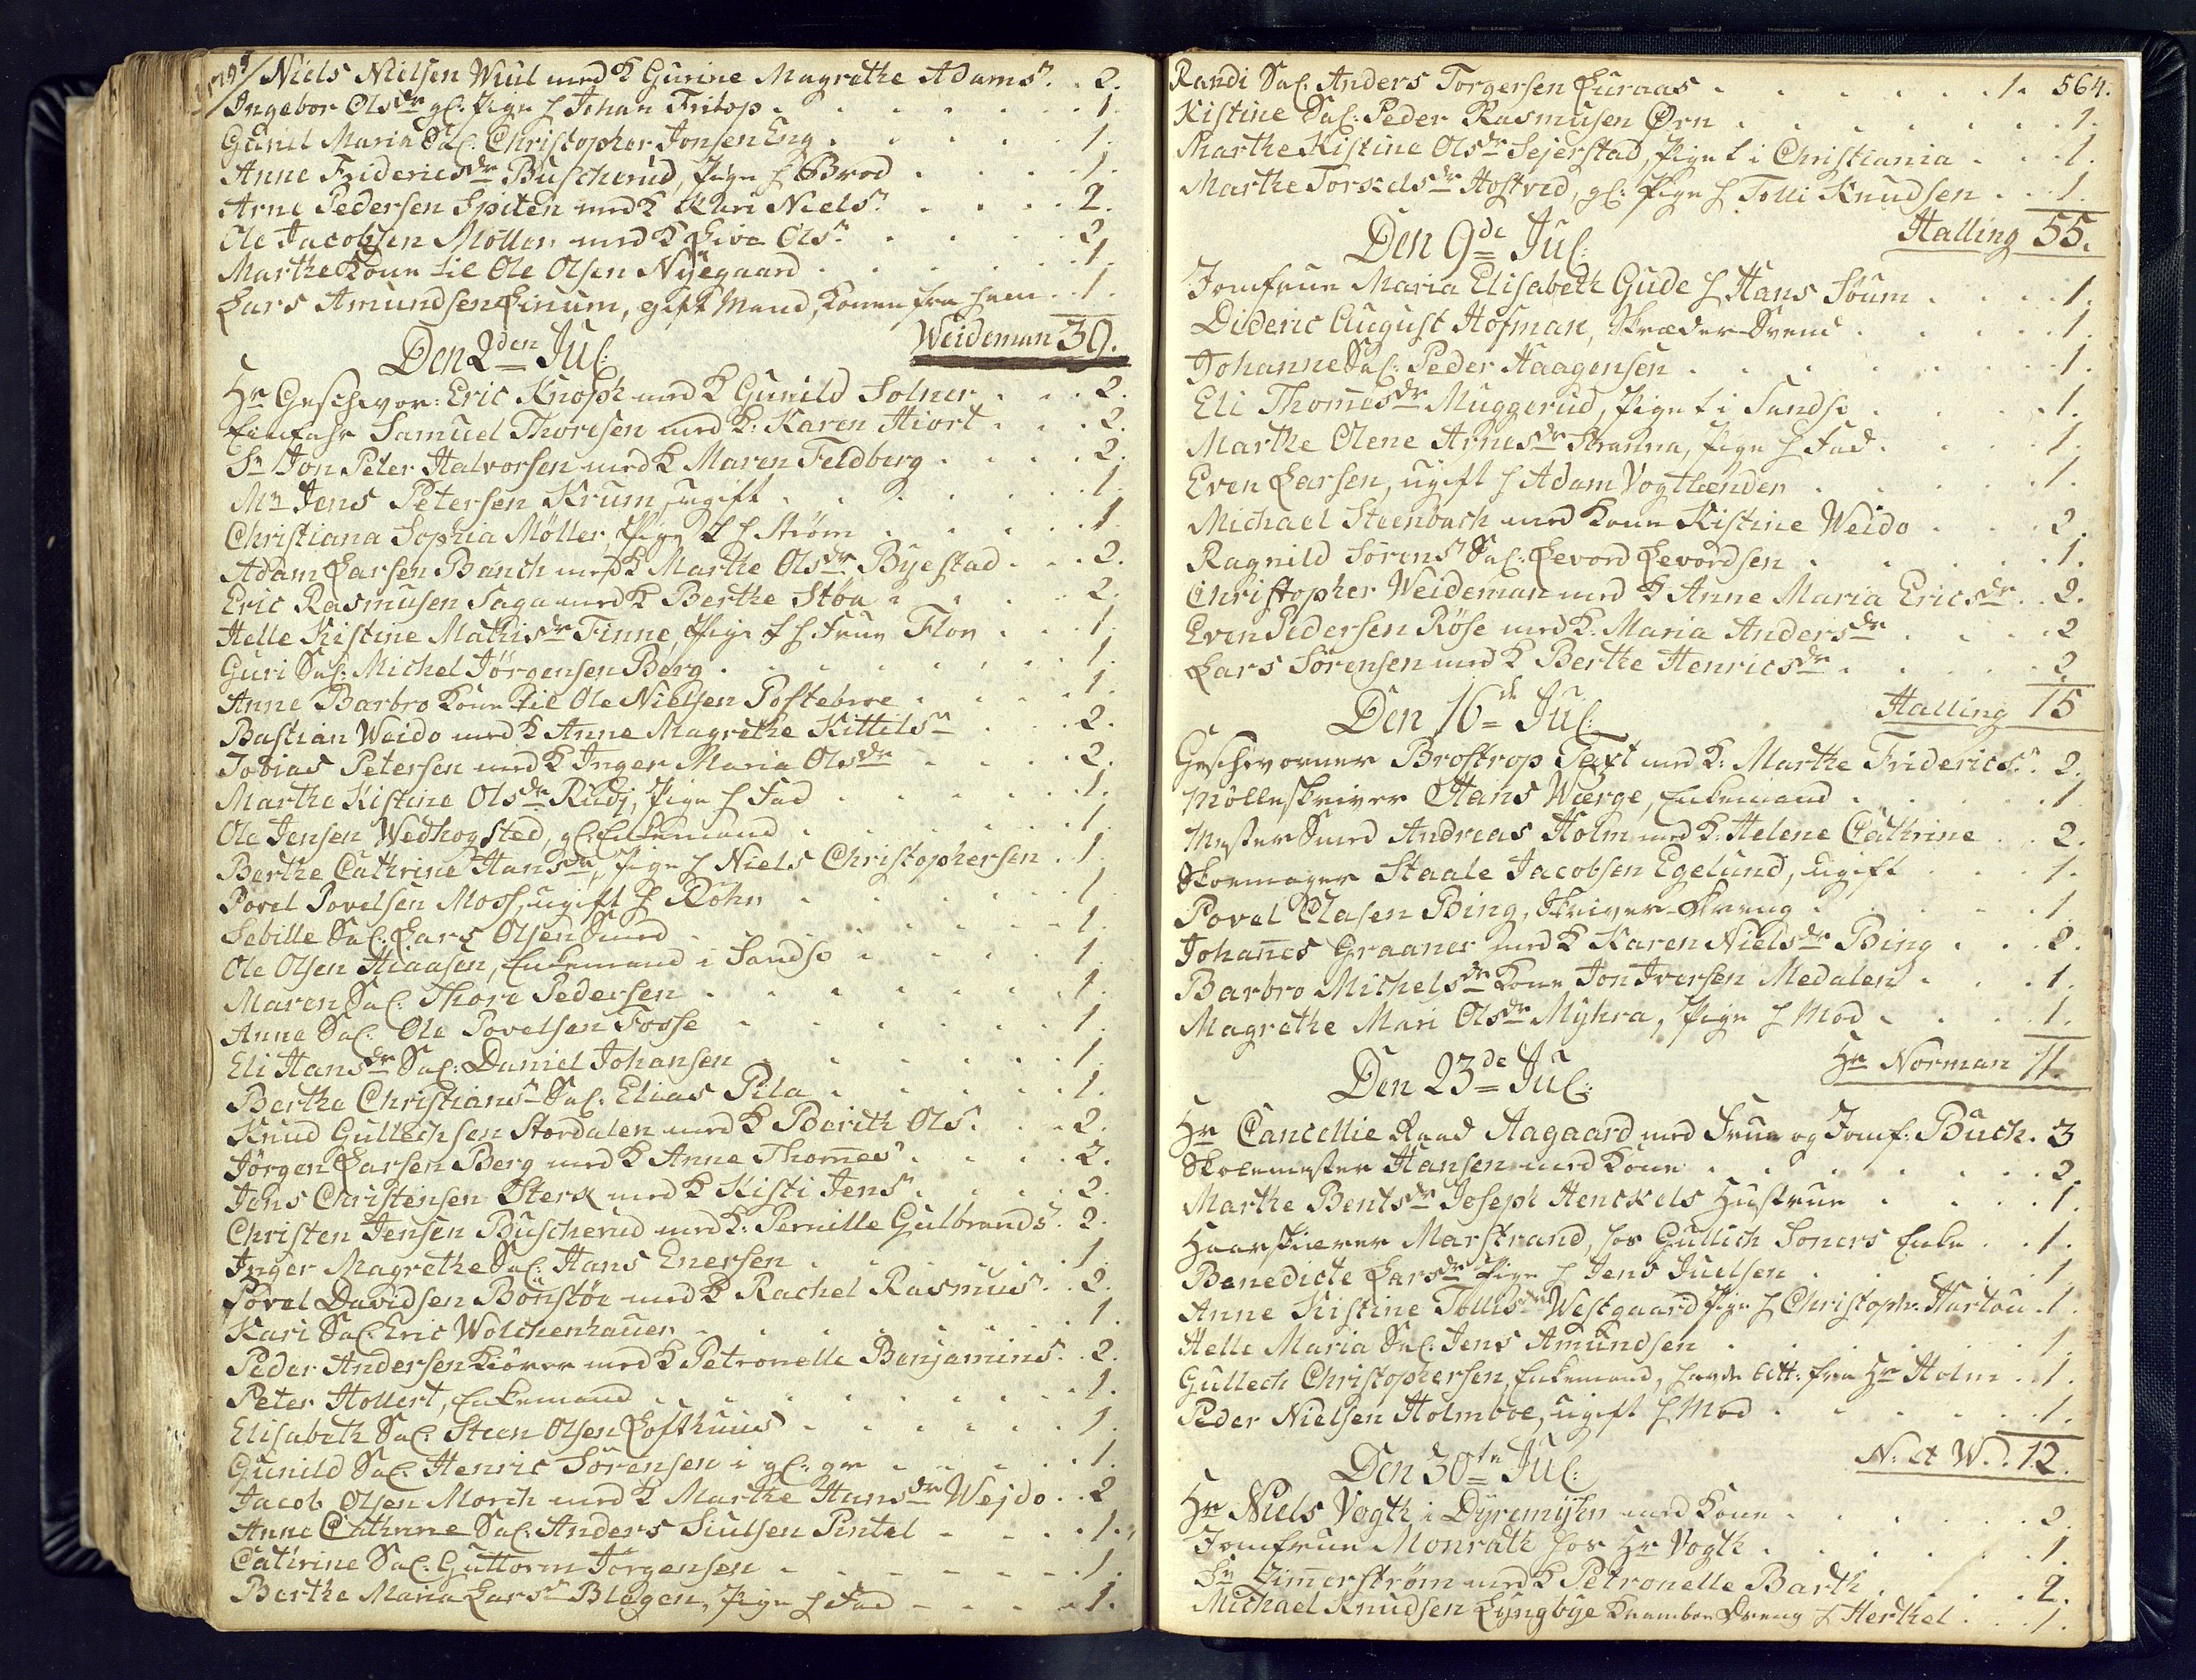 Niels Nielsen Wiul med K Gurine Magrethe Adams. . 2.
Ingebor Olsdr gl: Pige h Johan Fritop . . . 1.
Gunil Maria Sal: Christopher Jonsen Eng . . . 1.
Anne Fridericsdr Buscherud, Pige h Brod . . . 1.
Arne Pedersen Spiten med K Kari Niels. . . . 2.
Ole Jacobsen Möller med K Live Ols. . . . 2
Marthe Kone til Ole Olsen Nyegaard . . . 1.
Lars Amundsen Linum, gift Mand, Konen fra ham . . 1.
Weideman 39.
Den 2den Jul:
Hr Geschwor: Eric Knoph med K Gunild Solner . . . 2.
Einfahr Samuel Thoresen med K: Karen Hiort . . . 2.
Sr Jon Peter Halvorsen med K Maren Feldberg . . . 2.
Mr Jens Petersen Krum, ugift . . . 1.
Christiana Sophia Möller, Pige h Strøm . . . 1.
Adam Larsen Banch med K Marthe Olsdr Byestad . . . 2.
Eric Rasmusen Saga med K Berthe Støa . . . 2.
Helle Kistine Mathisdr Finne, Pige h Frue Flor . . . 1.
Guri Sal: Michel Jörgensen Berg . . . 1.
Anne Barbro Kone til Ole Nielsen Postebroe . . . 1.
Bastian Weido med K Anne Magrethe Kittels . . . 2.
Tobias Petersen med K Inger Maria Olsdr . . . 2.
Marthe Kistine Olsdr Rudj, Pige h Fad . . . 1.
Ole Jensen Wedhogsted, gl: Enkemand . . . 1.
Berthe Cathrine Hansdr, Pige h Niels Christophersen . 1.
Povel Povelsen Moss, ugift h Röhn . . . 1.
Sebille Sal: Lars Olsen Smed . . . 1.
Ole Olsen Hiaasen, Enkemand i Sandsv . . . 1.
Maren Sal: Thore Pedersen . . . 1.
Anne Sal: Ole Povelsen Fosse . . . 1.
Eli Hansdr Sal: Daniel Johansen . . . 1.
Berthe Christians Sal: Elias Pila . . . 1.
Knud Gullichsen Stordalen med K Berith Ols. . . . 2.
Jörgen Larsen Berg med K Anne Thomes. . . . 2.
Jens Christensen Sterk med K Kisti Jens . . . 2.
Christen Jensen Buscherud med K: Pernille Gulbrands. 2.
Inger Magrethe Sal: Hans Enersen . . . 1.
Povel Davidsen Bönstøe med K Rachel Rasmus. . 2.
Kari Sal: Eric Wolchenhauer . . . 1.
Peder Andersen Kiörer med K Petronelle Benjamins. . 2.
Peter Hollert, Enkemand . . . 1.
Elisabeth Sal: Steen Olsen Lofthuus . . . 1.
Gunild Sal: Henric Sörensen i gl: gr . . . 1.
Jacob Olsen Morch med K Marthe Hansdr Wejdo . . 2
Anne Cathrine Sal: Anders Siulsen Pintel . . . 1.
Cathrine Sal: Guttorm Jörgensen . . . 1.
Berthe Maria Lars Blegen, Pige h Fad . . . 1.
Randi Sal: Anders Torgersen Luraas . . . 1. 564.
Kistine Sal: Peder Rasmusen Ørn . . . 1.
Marthe Kistine Olsdr Sejerstad, Pige t i Christiania . . . 1.
Marthe Torkelsdr Hostved, gl: Pige h Tolli Knudsen . . 1.
Halling 55.
Den 9de Jul:
Jomfrue Maria Elisabeth Gude h Hans Soum . . . 1.
Dideric August Hofman, Skræder Svend . . . 1.
Johanne Sal: Peder Haagensen . . . 1.
Eli Thomesdr Muggerud, Pige t i Sandsv . . . 1.
Marthe Olene Arnesdr Stranna, Pige h Fad . . . 1.
Even Larsen, ugift h Adam Vogtlænder . . . 1.
Michael Steenbach med Kone Kistine Weido . . . 2.
Ragnild Sörens Sal: Levord Levordsen . . . 1.
Christopher Weideman med K Anne Maria Ericsdr . . 2.
Even Pedersen Röse med K: Maria Andersdr . . . 2
Lars Sörensen med K Berthe Henricsdr . . . 2
Halling 15
Den 16de Jul:
Geschworner Brostrop Text med K: Marthe Frideric . 2.
Mölleskriver Hans Wærge, Enkemand . . . 1
Mester Smed Andreas Holm med K: Helene Cathrine . . 2.
Skoemager Staale Jacobsen Egelund, ugift . . . 1.
Povel Clasen Bing, Skriver-Dreng . . . 1.
Johanes Graaner med K Karen Nielsdr Bing . . . 2.
Barbro Michelsdr Kone Jon Iversen Medalen . . . 1.
Magrethe Mari Olsdr Myhra, Pige h Mod . . . 1.
Hr Norman 11.
Den 23de Jul:
Hr Cancellie Raad Aagaard med Frue og Jomf: Buch . 3
Skolemester Hansen med Kone . . . 2.
Marthe Bentsdr Joseph Henckels Hustrue . . . 1.
Haarskiærer Marstrand, hos Gullich Soners Enke . . 1.
Benedicte Larsdr Pige h Jens Juelsen . . . 1
Anne Kistine Tollis Westgaard Pige h Christoph: Hartou . 1.
Helle Maria Sal: Jens Amundsen . . . 1.
Gullech Christophersen, Enkemand, havde Att: fra Hr Holm . 1.
Peder Nielsen Holmboe, ugift h Mod . . . 1.
N. et W. . 12.
Den 30te Jul:
Hr Niels Vogth i Dyremyhr med Kone . . . 2.
Jomfrue Monrath hos Hr Vogth . . . 1.
Sr Zimerström med K Petronelle Barth . . . 2.
Michael Knudsen Lyngbye Krambor Dreng h Herthel . . 1.